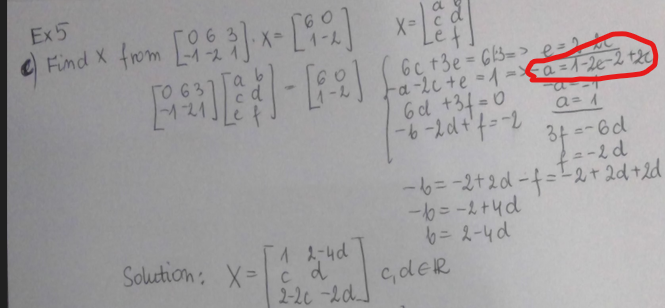 Ex5
c) Find X from [0 6 3 -1 -2 1] · X = [6 0 1 -2] X = [a b c d e f]
[0 6 3 -1 -2 1] [a b c d e f] = [6 0 1 -2]
6c + 3e = 6 |:3 => e = 2 - 2c
-a - 2c + e = 1 => -a = 1 - 2e - 2 + 2c
6d + 3f = 0
-b - 2d + f = -2
-a = -1
a = 1
3f = -6d
f = -2d
-b = -2 + 2d - f = -2 + 2d + 2d
-b = -2 + 4d
b = 2 - 4d
Solution: X = [1 2-4d c d 2-2c -2d] c, d ∈ ℝ